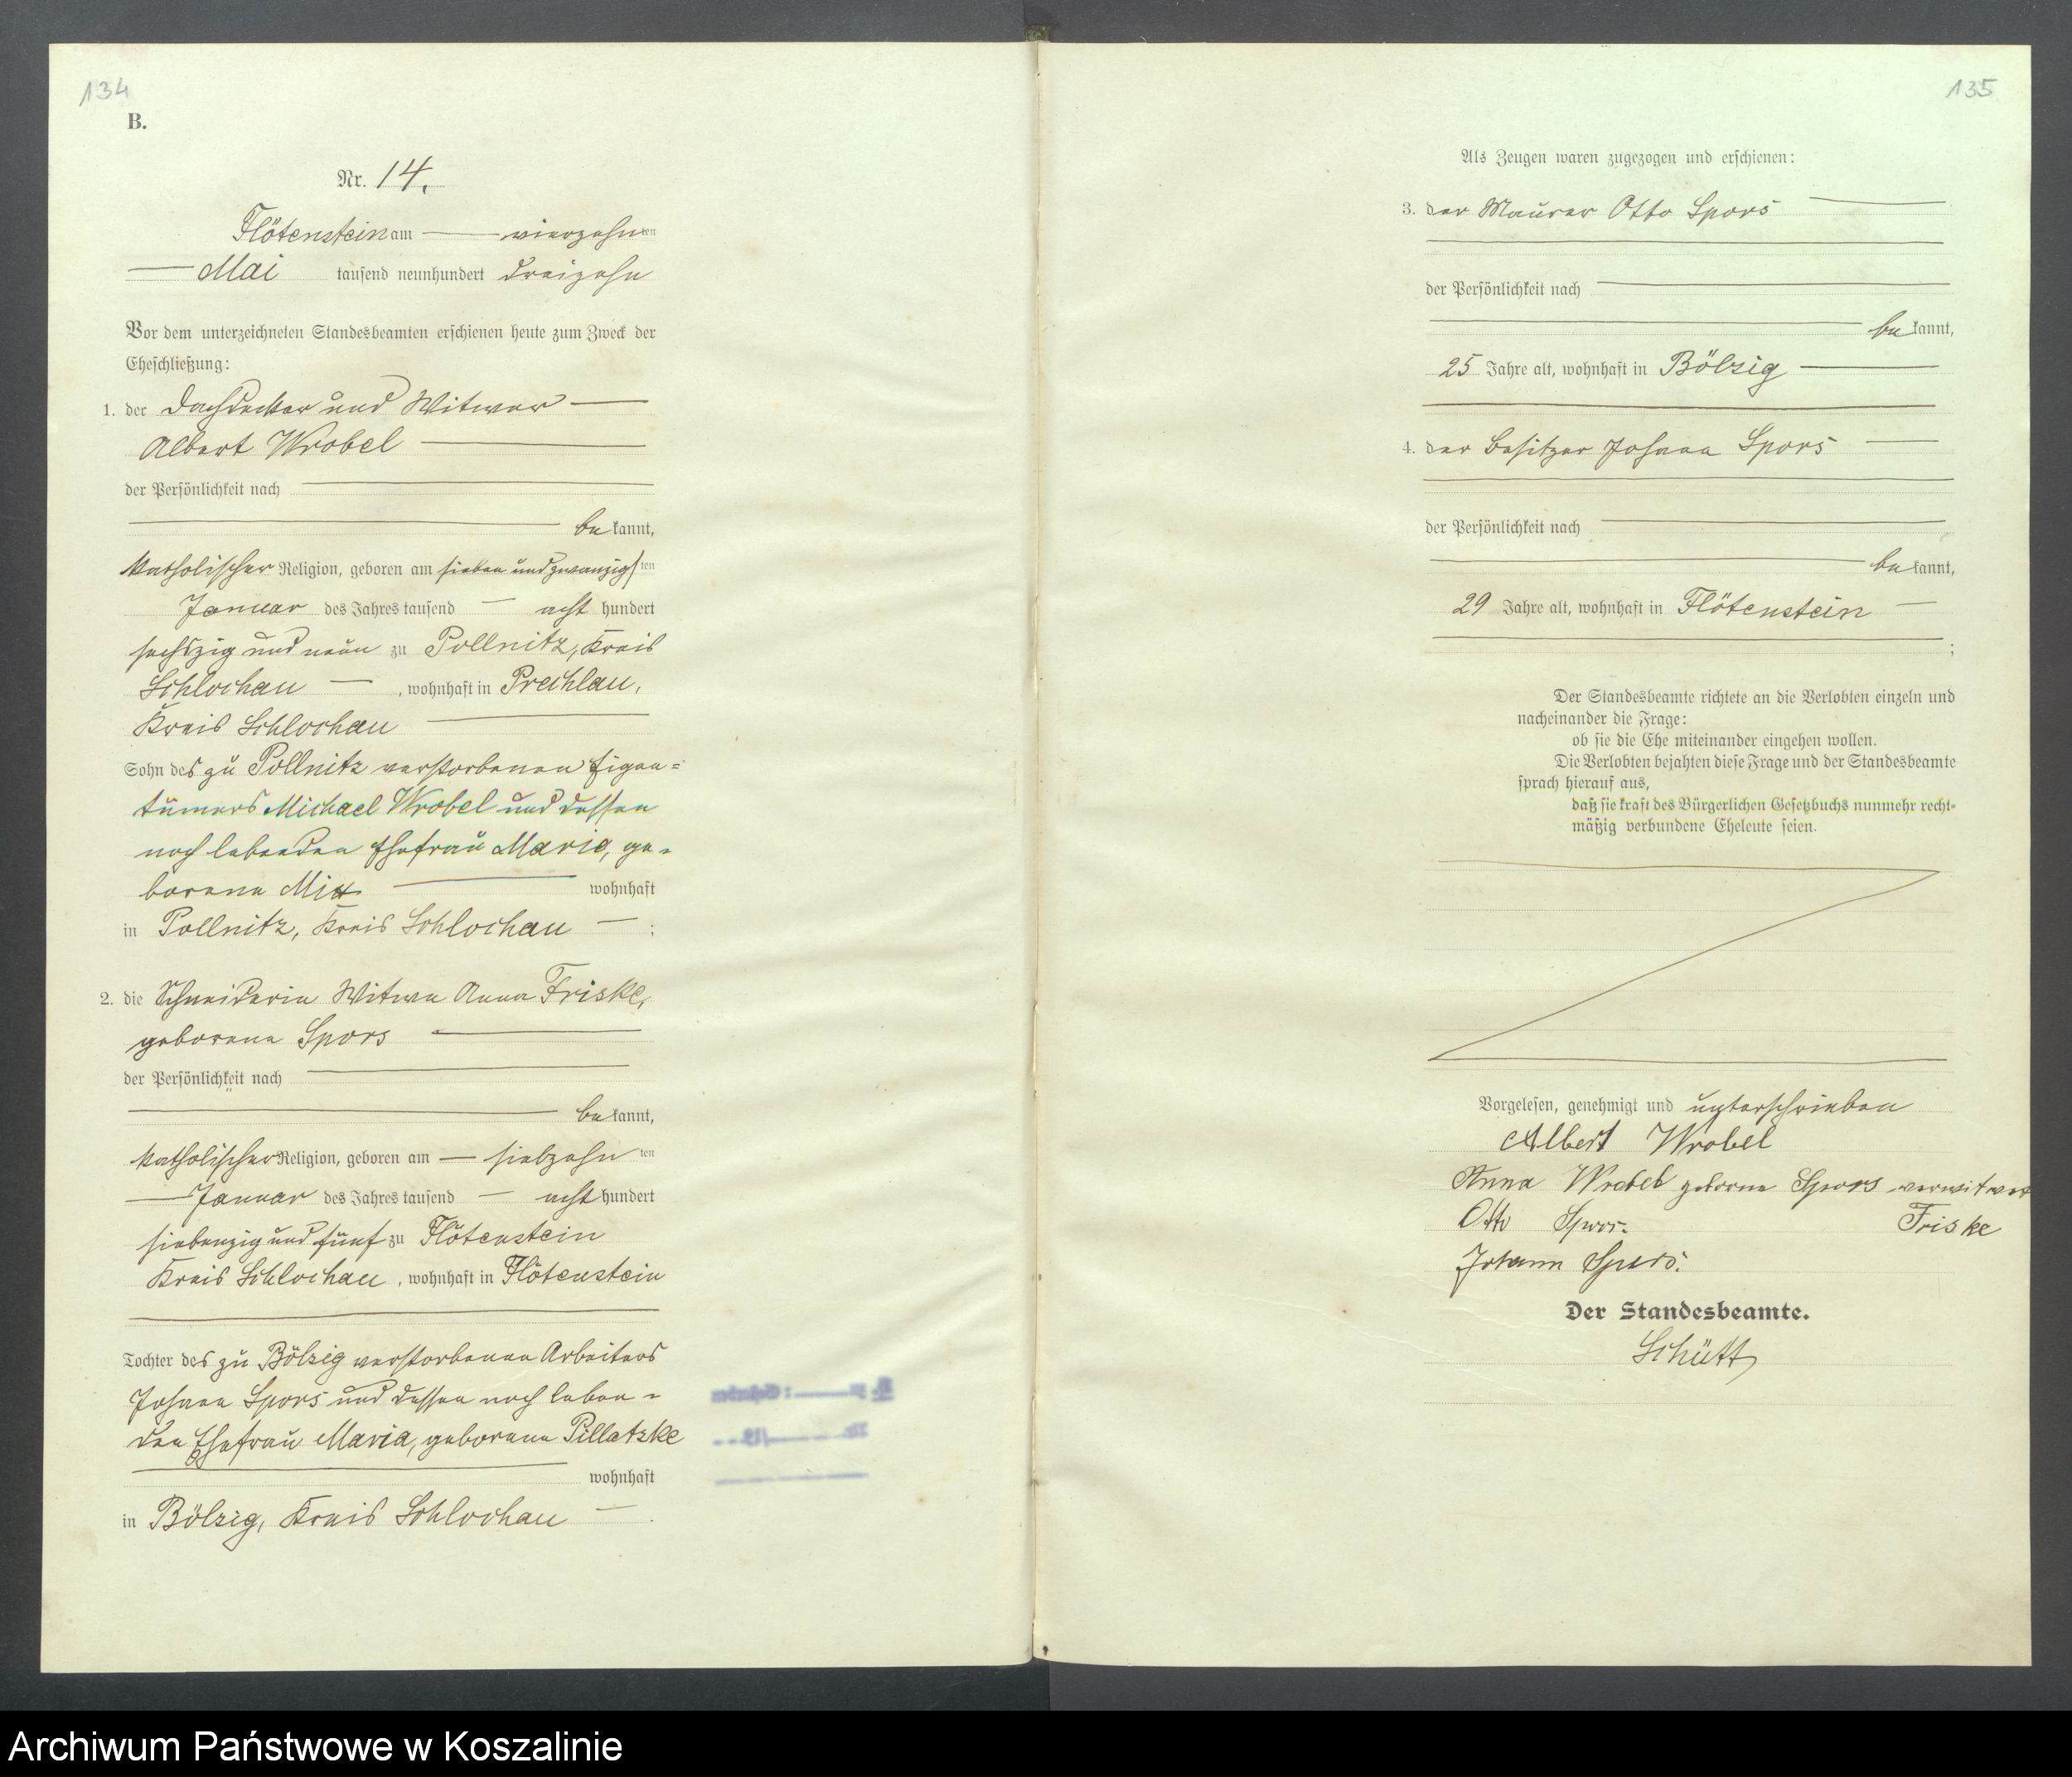 134
B.
Nr. 14.
Flötenstein am — vierzehn ten
— Mai tausend neunhundert dreizehn
Vor dem unterzeichneten Standesbeamten erschienen heute zum Zweck der
Eheschließung:
1. der Dachdecker und Witwer —
Albert Wrobel —
der Persönlichkeit nach —
— be kannt,
katholischer Religion, geboren am sieben und zwanzig ten
Januar des Jahres tausend — acht hundert
sechszig und neun zu Pollnitz, Kreis
Schlochau — , wohnhaft in Prechlau,
Kreis Schlochau —
Sohn des zu Pollnitz verstorbenen Eigen=
tümers Michael Wrobel und dessen
noch lebenden Ehefrau Maria, ge=
borene — wohnhaft
in Pollnitz, Kreis Schlochau — ;
2. die Schneiderin Witwe Anna Friske,
geborene Spors —
der Persönlichkeit nach —
— be kannt,
katholischer Religion, geboren am — siebzehn ten
— Januar des Jahres tausend — acht hundert
siebenzig und fünf zu Flötenstein
Kreis Schlochau , wohnhaft in Flötenstein
Tochter des zu Bölzig verstorbenen Arbeiters
Johann Spors und dessen noch leben=
den Ehefrau Maria, geborene Pillatzke
— wohnhaft
in Bölzig, Kreis Schlochau — .
135
Als Zeugen waren zugezogen und erschienen:
3. der Maurer Otto Spors —
der Persönlichkeit nach —
— be kannt,
25 Jahre alt, wohnhaft in Bölzig —
4. der Besitzer Johann Spors —
der Persönlichkeit nach —
— be kannt,
29 Jahre alt, wohnhaft in Flötenstein —
;
Der Standesbeamte richtete an die Verlobten einzeln und
nacheinander die Frage:
ob sie die Ehe miteinander eingehen wollen.
Die Verlobten bejahten diese Frage und der Standesbeamte
sprach hierauf aus,
daß sie kraft des Bürgerlichen Gesetzbuchs nunmehr recht=
mäßig verbundene Eheleute seien.
Vorgelesen, genehmigt und unterschrieben
Albert Wrobel
Anna Wrobel geborne Spors verwitwet
Otto Spors. Friske
Johann Spors.
Der Standesbeamte.
Schütt
Archiwum Państwowe w Koszalinie